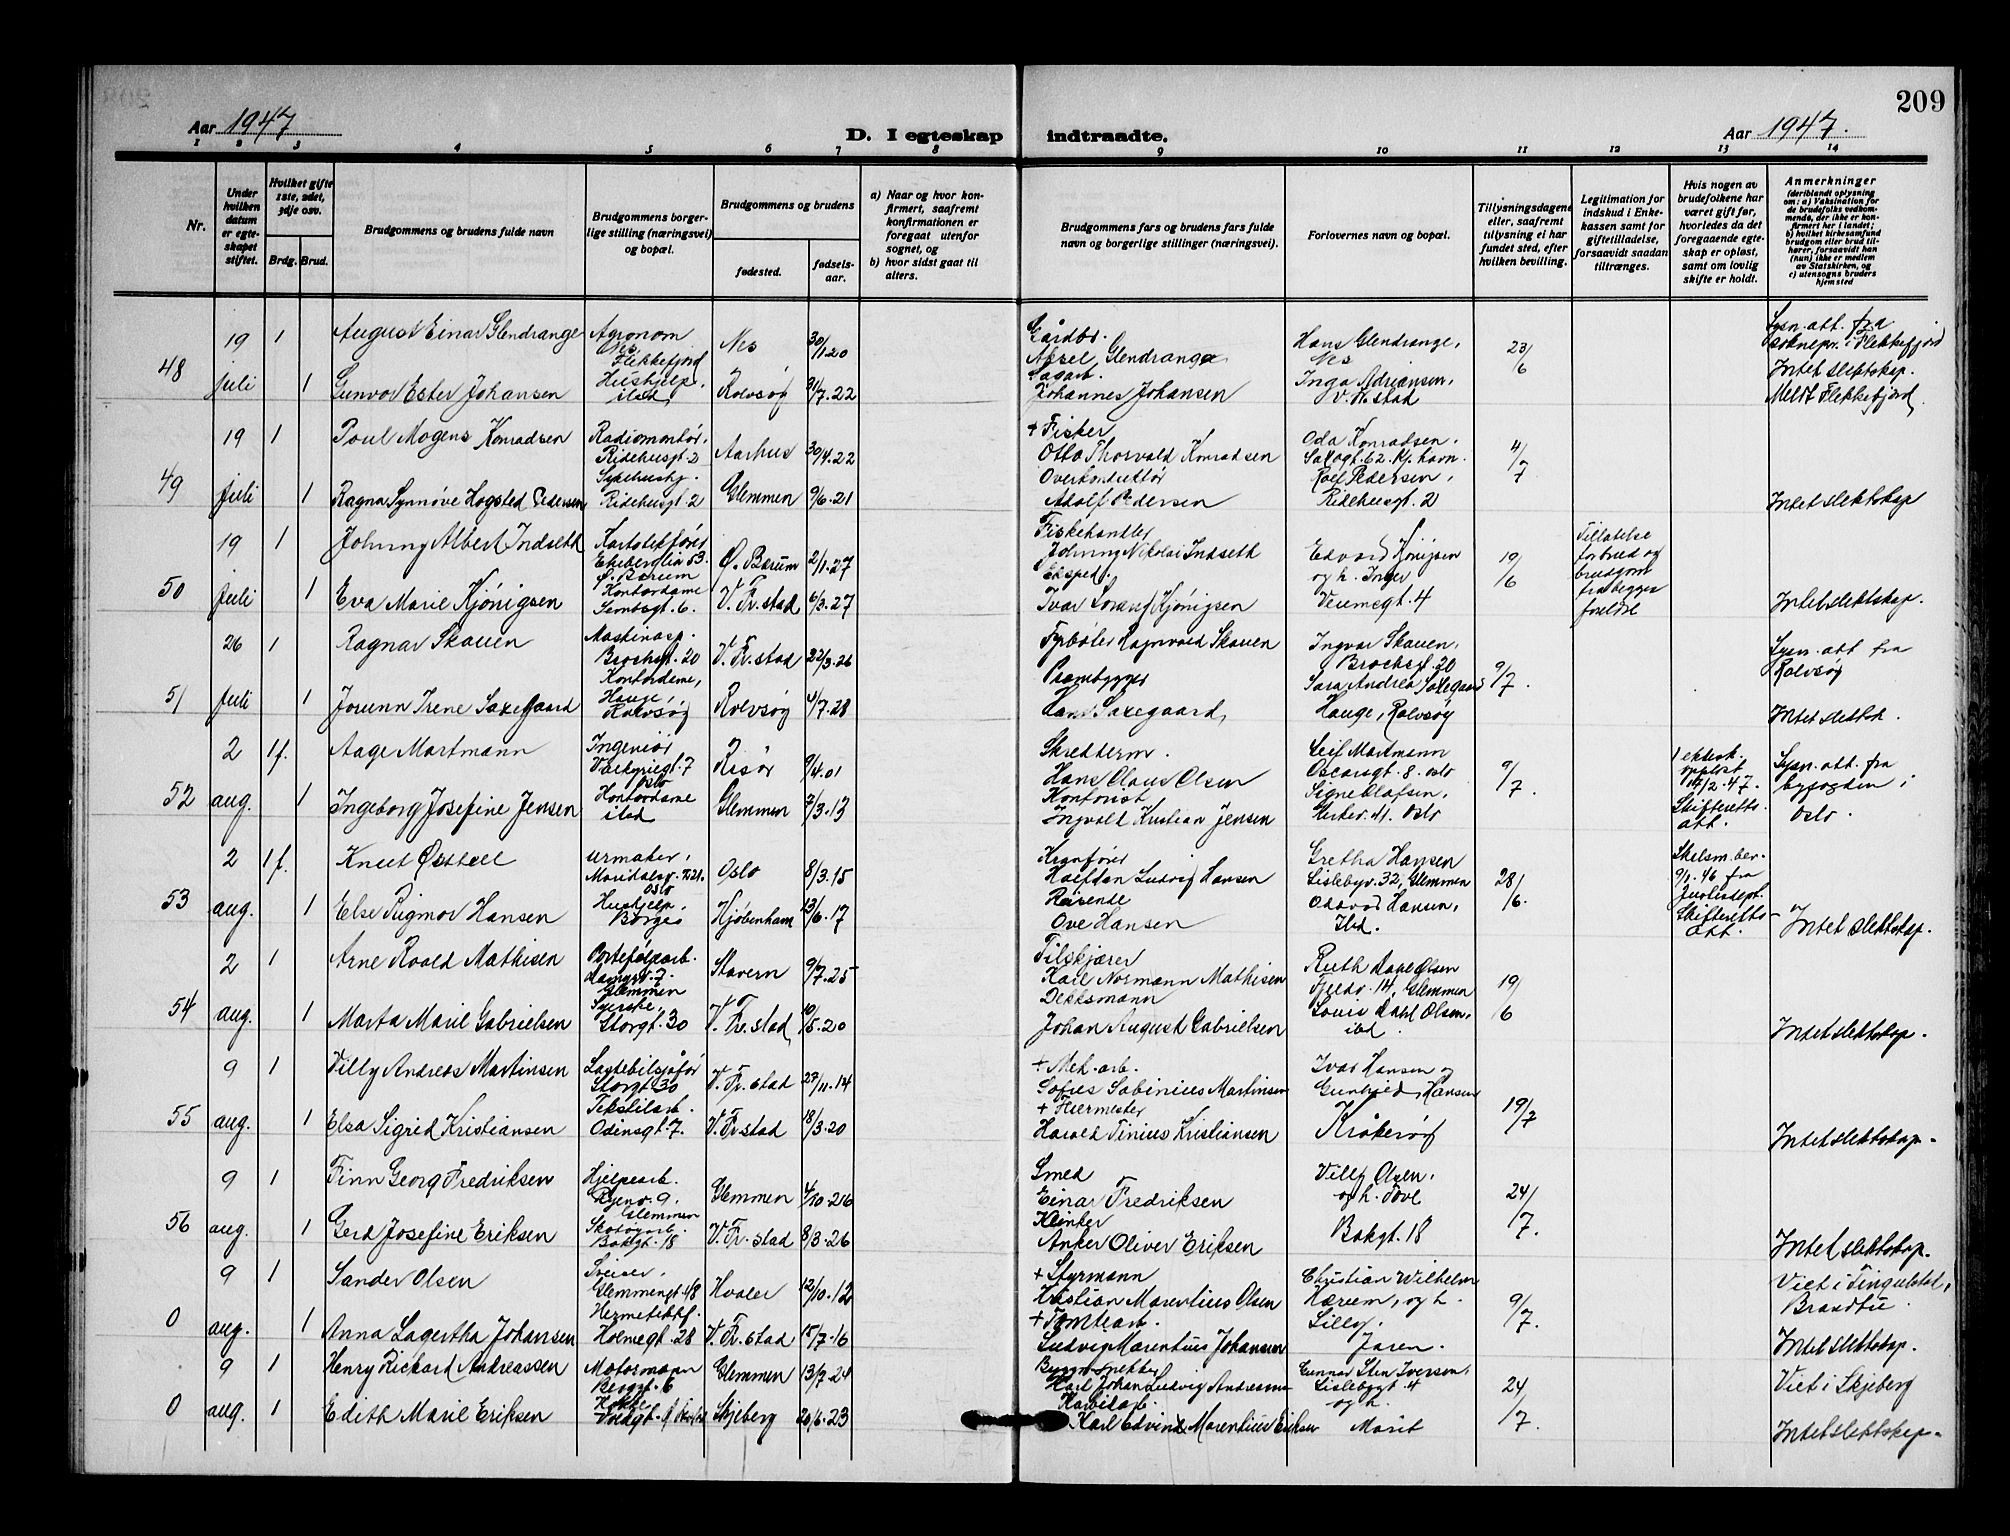 209
Aar 1947
D. I egteskap indtraadte.
Aar 1947.
1 2 3 4 5 6 7 8 9 10 11 12 13 14
Nr.
Under hvilken datum er egteskapet stiftet.
Hvilket gifte 1ste, 2det, 3dje osv.
Brdg. Brud.
Brudgommens og brudens fulde navn
Brudgommens borgerlige stilling (næringsvei) og bopæl.
Brudgommens og brudens
fødested.
fødselsaar.
a) Naar og hvor konfirmert, saafremt konfirmationen er foregaat utenfor sognet, og
b) hvor sidst gaat til alters.
Brudgommens fars og brudens fars fulde navn og borgerlige stillinger (næringsvei).
Forlovernes navn og bopæl.
Tillysningsdagene eller, saafremt tillysning ei har fundet sted, efter hvilken bevilling.
Legitimation for indskud i Enkekassen samt for giftetilladelse, forsaavidt saadan tiltrænges.
Hvis nogen av brudefolkene har været gift før, hvorledes da det foregaaende egteskap er opløst, samt om lovlig skifte er holdt.
Anmerkninger
(deriblandt oplysning om: a) Vaksination for de brudefolks vedkommende, der ikke er konfirmert her i landet; b) hvilket kirkesamfund brudgom eller brud tilhører, forsaavidt han (hun) ikke er medlem av Statskirken, og c) utensogns bruders hjemsted
48
19 juli
1
August Einar Glendrange
Agronom Nes, Flekkefjord
Nes
30/1.20
Gårdbr. Aksel Glendrange
Hans Glendrange, Nes
23/6
Lysn. att. fra soknepr. i Flekkefjord
1
Gunvor Ester Johansen
Hushjelp, ilsd
Rolvsøy
31/7.22
Sagarb. Johannes Johansen
Inga Adriansen, V. Fr.stad
Intet slektskap.
Meldt Flekkefjord
49
19 juli
1
Poul Mogens Konradsen
Radiomontør, Ridehusgt. 2
Aarhus
30/4.22
+ Fisker Otto Thorvald Konradsen
Oda Konradsen, Saxogt. 62. Kj.havn.
4/7
1
Ragna Synnøve Hogsted Pedersen
Sykehushj. Ridehusgt 2
Glemmen
9/6.21
Overkonduktør Adolf Pedersen
Rolf Pedersen, Ridehusgt. 2
Intet slektskap
50
19 juli
1
Johnny Albert Indseth
Kartotekfører Ekeberglia 53. Ø. Bærum
Ø. Bærum
2/1.27
Fiskehandler Johnny Nikolai Indseth
Edvard Kjönigsen og h. Inger
19/6
Tillatelse for brud og brudgom fra begges foreldre
1
Eva Marie Kjönigsen
Kontordame
V. Fr.stad
6/3.27
Eksped. Ivar Kjönigsen
Veumsgt. 4
Intet slektskap.
51
26 juli
1
Ragnar Skauen
Maskinasp. Brochsgt. 20
V. Fr.stad
22/3.26
Fyrbøter Ragnvald Skauen
Ingvar Skauen, Brochsgt. 20
9/7.
Lysn. att fra Rolvsøy
1
Jorunn Irene Saxegaard
Kontordame, Hauge, Rolvsøy
Rolvsøy
4/7.28
Prambygger Hans Saxegaard,
Sara Andrea Saxegaard Hauge, Rolvsøy
Intet slektsk.
52
2 aug.
1 f.
Aage Martmann
Ingeniør Valkyriegt. 7 Oslo
Risør
9/4.01
Skredderm. Hans Claus Olsen
Leif Martmann Oscarsgt. 8. Oslo
9/7.
1 ektesk. oppløst 14/2.47. Skifteretts. att.
Lysn. att. fra byfogden i Oslo.
1
Ingeborg Josefine Jensen
Kontordame ilsd
Glemmen
7/3.13
Kontorist Ingvald Kristian Jensen
Signe Olafsen, Oslo
53
2 aug.
1 f.
Knut Østhell
urmaker, Maridalsv. Oslo
Oslo
8/3.15
Kranfører Halfdan Ludvig Hansen
Gretha Hansen Lislebyv. 32, Glemmen
28/6.
Skilsm. bev. 9/1.46 fra Justisdept. Skifteretts-att.
1
Else Rugmor Hansen
Hushjelp, Borge
Kjøbenham
13/6.17
Reisende Ove Hansen
Oddvar Hansen, Ibd.
Intet slektskap.
54
2 aug.
1
Arne Roald Mathisen
Glemmen
Stavern
9/7.25
Filskjærer Karl Normann Mathisen
Ruth Dahl Olsen Fjeldv. 14, Glemmen
19/6
1
Marta Marie Gabrielsen
Syerske, Storgt. 30
V. Fr.stad
10/5.20
Dekksmann Johan August Gabrielsen
Louis Dahl Olsen, ibd.
Intet slektskap.
55
9 aug.
1
Villy Andreas Martinsen
Lastebilsjåfør Storgt. 30
V. Fr.stad
27/11.14
+ Mek. arb. Sofus Sabinius Martinsen
Ivar Hansen og Gunhjed Hansen
19/7
1
Elsa Sigrid Kristiansen
Tekstilarb. Odinsgt. 7.
V. Fr.stad
18/3.20
+ Murmester Harald Tinius Kristiansen
Kråkerøy
Intet slektskap.
56
9 aug.
1
Finn Georg Fredriksen
Hjelpearb. 9. Glemmen
Glemmen
4/10.26
Smed Einar Fredriksen
Villy Olsen. og h. Tove
24/7.
1
Gerd Josefine Eriksen
Skotøyarb. Bakgt. 18
V. Fr.stad
8/3.26
Klinker Anker Oliver Eriksen
Bakgt. 18
Intet slektskap.
0
9 aug.
1
Sander Olsen
Sveiser, Glemmengt. 48
Hvaler
12/10.12
+ Styrmann Kristian Marentius Olsen
Christian Wilhelm Hareem, og h. Lilly.
9/7.
Viet i Tingelstad, Brandbu.
1
Anna Lagertha Johansen
Hermetikkf. Holmegt. 28
V. Fr.stad
15/7.16
+ Tomtearb. Ludvig Marentius Johansen
Jaren.
Intet slektskap.
0
9 aug.
1
Henry Rickard Andreassen
Motormann Berggt. 6
Glemmen
13/7.24
Karl Johan Ludvig Andreassen
Gunnar Sten Iversen, Lislebygt. 4 og h.
24/7.
Viet i Skjeberg
1
Edith Marie Eriksen
Skjeberg
20/6.23
Karl Edvind Marentius Eriksen
Marit
Intet slektskap.